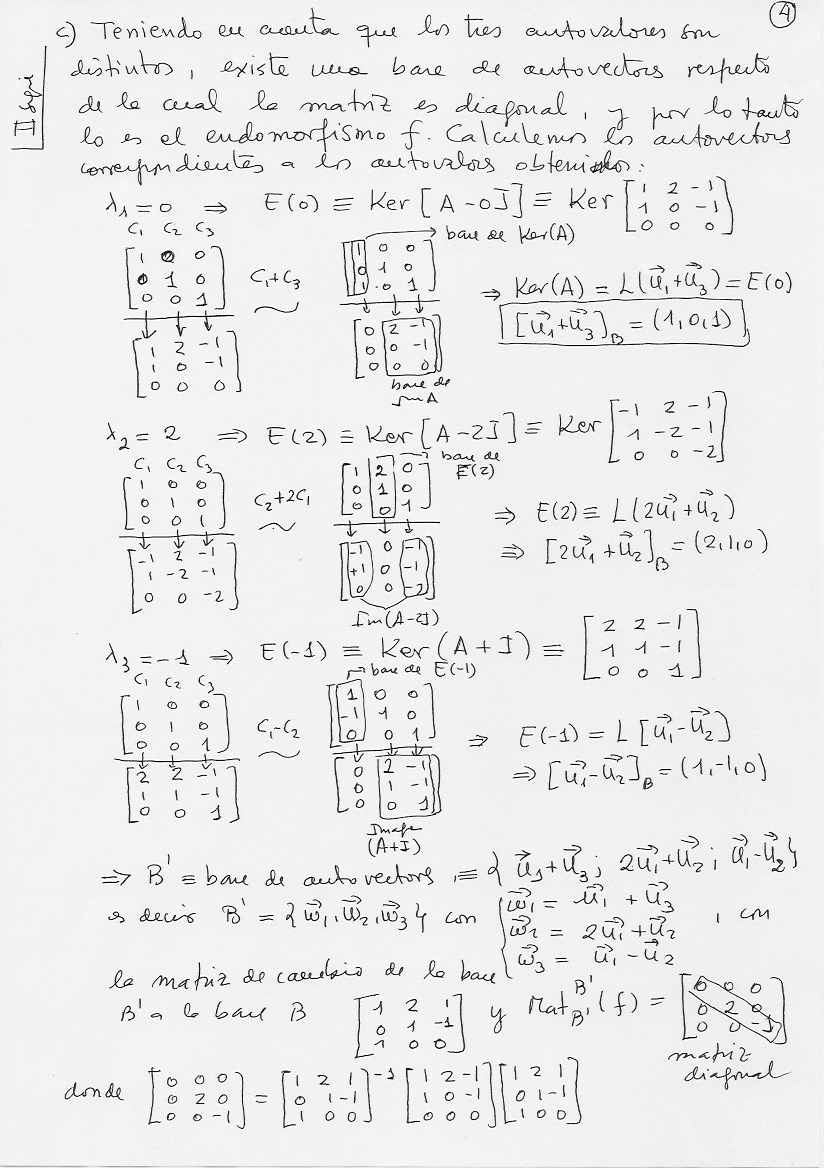 4
II bqri
c) Teniendo en cuenta que los tres autovalores son
distintos, existe una base de autovectores respecto
de la cual la matriz es diagonal, y por lo tanto
lo es el endomorfismo f. Calculemos los autovectores
correspondientes a los autovalores obtenidos:
λ₁ = 0 ⇒ E(0) ≡ Ker [A - 0I] ≡ Ker [1 2 -1
1 0 -1
0 0 0]
C₁ C₂ C₃
[1 0 0
0 1 0
0 0 1]
[1 2 -1
1 0 -1
0 0 0]
C₁+C₃
∼
base de Ker(A)
[1 0 0
0 1 0
1 0 1]
[0 2 -1
0 0 -1
0 0 0]
base de
Im A
⇒ Ker(A) = L(u⃗₁+u⃗₃) = E(0)
[u⃗₁+u⃗₃]_B = (1,0,1)
λ₂ = 2 ⇒ E(2) ≡ Ker [A-2I] ≡ Ker [-1 2 -1
1 -2 -1
0 0 -2]
C₁ C₂ C₃
[1 0 0
0 1 0
0 0 1]
[-1 2 -1
1 -2 -1
0 0 -2]
C₂+2C₁
∼
base de
E(2)
[1 2 0
0 1 0
0 0 1]
[-1 0 -1
+1 0 -1
0 0 -2]
Im(A-2I)
⇒ E(2) ≡ L(2u⃗₁+u⃗₂)
⇒ [2u⃗₁+u⃗₂]_B = (2,1,0)
λ₃ = -1 ⇒ E(-1) ≡ Ker (A+I) ≡ [2 2 -1
1 1 -1
0 0 1]
C₁ C₂ C₃
[1 0 0
0 1 0
0 0 1]
[2 2 -1
1 1 -1
0 0 1]
C₁-C₂
∼
base de E(-1)
[1 0 0
-1 1 0
0 0 1]
[0 2 -1
0 1 -1
0 0 1]
Imagen
(A+I)
⇒ E(-1) = L [u⃗₁-u⃗₂]
⇒ [u⃗₁-u⃗₂]_B = (1,-1,0)
⇒ B' ≡ base de autovectores, ≡ { u⃗₁+u⃗₃ ; 2u⃗₁+u⃗₂ ; u⃗₁-u⃗₂ }
es decir B' = { w⃗₁, w⃗₂, w⃗₃ } con { w⃗₁ = u⃗₁ + u⃗₃
w⃗₂ = 2u⃗₁ + u⃗₂ , con
w⃗₃ = u⃗₁ - u⃗₂
la matriz de cambio de la base
B' a la base B [1 2 1
0 1 -1
1 0 0] y Mat_B'^B' (f) = [0 0 0
0 2 0
0 0 -1]
matriz
diagonal
donde [0 0 0
0 2 0
0 0 -1] = [1 2 1
0 1 -1
1 0 0]⁻¹ [1 2 -1
1 0 -1
0 0 0] [1 2 1
0 1 -1
1 0 0]